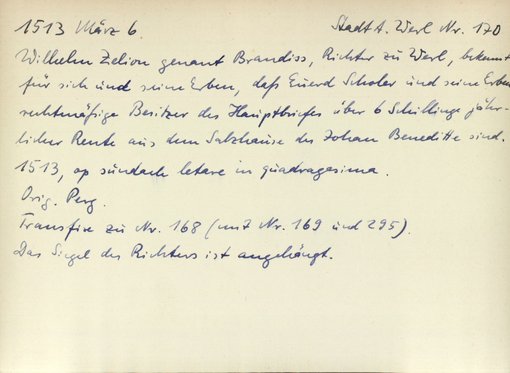 1513 März 6. StadtA. Werl Nr. 170
Wilhelm Zelion genant Brandiss, Richter zu Werl, bekennt
für sich und seine Erben, daß Euerd Scholer und seine Erben
rechtmäßige Besitzer des Hauptbriefes über 6 Schillinge jähr-
licher Rente aus dem Salzhause des Johan Beneditte sind.
1513, op sundach letare in quadragesima.
Orig. Perg.
Transfix zu Nr. 168 (mit Nr. 169 und 295).
Das Siegel des Richters ist angehängt.